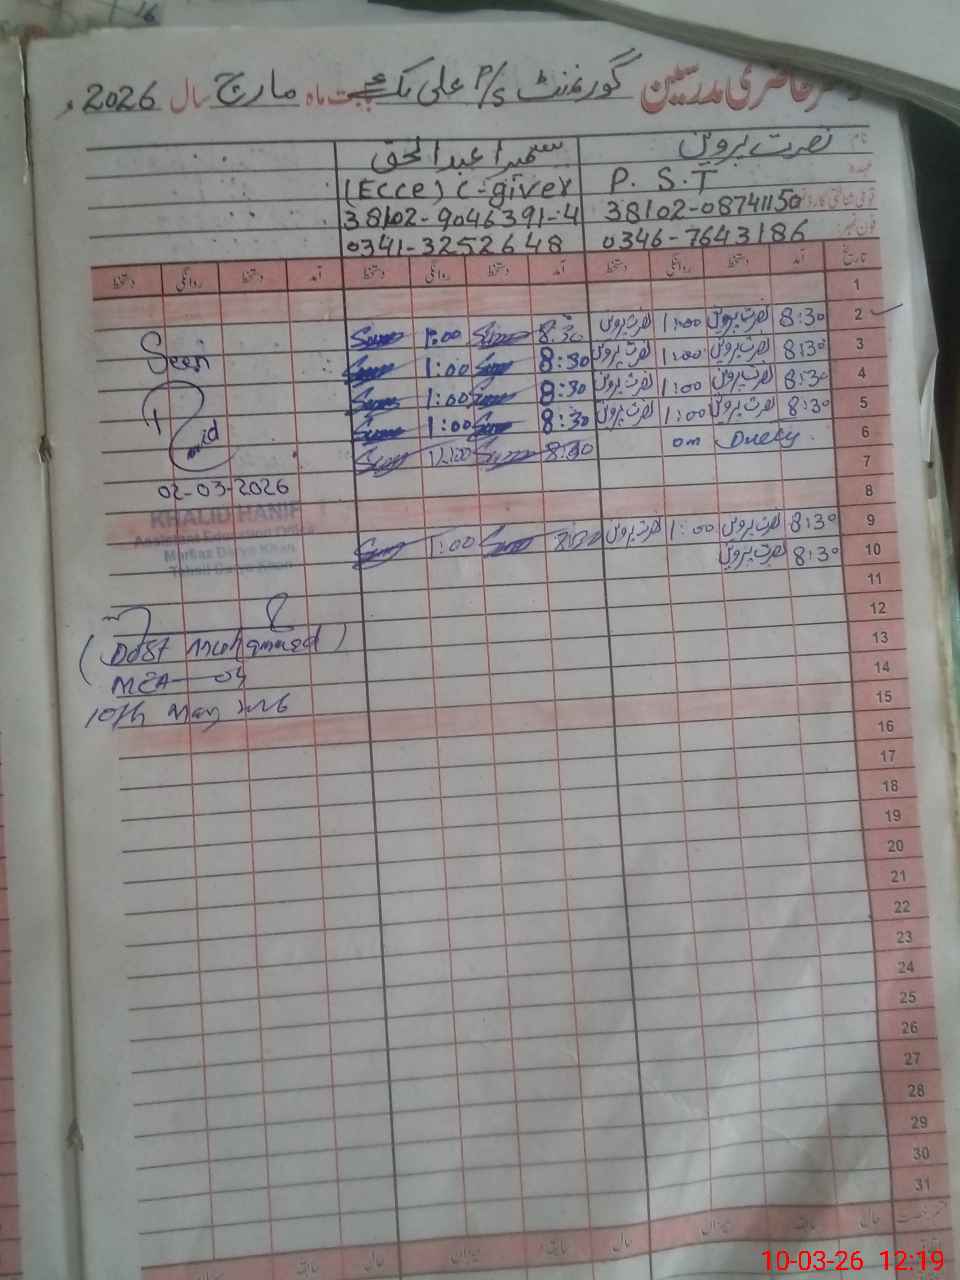 حاضری مدرسین گورنمنٹ P/S علی بابت ماہ مارچ سال 2026ء
نام نصرت پروین سمیرا عبدالحق
عہدہ P. S. T (Ecce) C-giver
38102-08741150 38102-9046391-4
فون نمبر 0346-7643186 0341-3252648
تاریخ آمد دستخط روانگی دستخط آمد دستخط روانگی دستخط آمد دستخط روانگی دستخط
1
2 8:30 نصرت پروین 1:00 نصرت پروین 8:30 1:00
3 8:30 نصرت پروین 1:00 نصرت پروین 8:30 1:00
4 8:30 نصرت پروین 1:00 نصرت پروین 8:30 1:00
5 8:30 نصرت پروین 1:00 نصرت پروین 8:30 1:00
6 on Duety 8:30 12:00
7
8
9 8:30 نصرت پروین 1:00 نصرت پروین 8:30 1:00
10 8:30 نصرت پروین
11
12
13
14
15
16
17
18
19
20
21
22
23
24
25
26
27
28
29
30
31
Seen
02-03-2026
KHALID HANIF
Assistant Education Officer
Markaz Darya Khan
Tehsil Darya Khan
(Dost Muhammad)
MEA-04
10th
حال سابقہ میزان حال سابقہ میزان حال
10-03-26 12:19